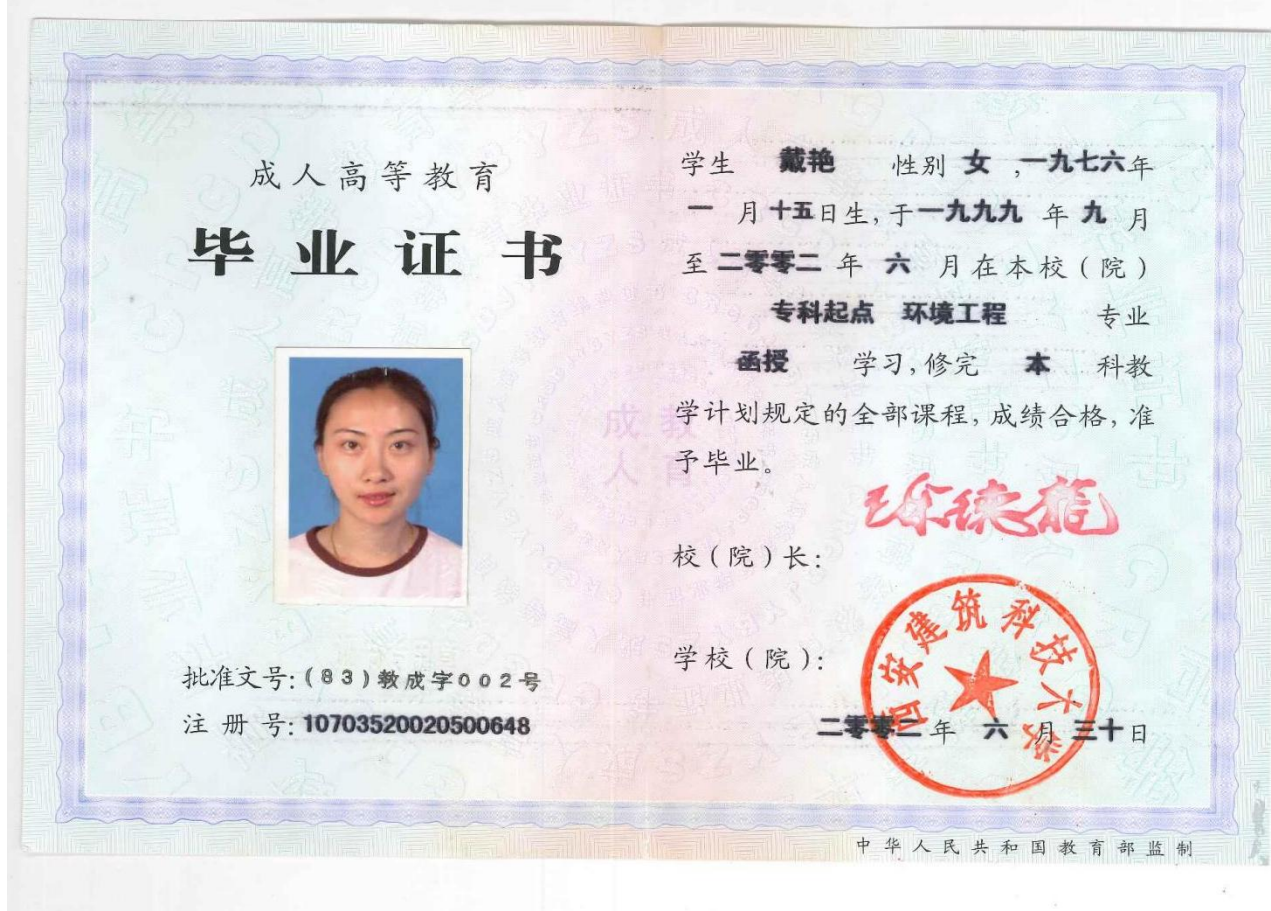 成人高等教育
毕业证书
批准文号:(83)教成字002号
注册号:10703520020500648
学生 戴艳 性别 女 ,一九七六年
一 月十五日生,于一九九九 年 九 月
至 二零零二 年 六 月在本校(院)
专科起点 环境工程 专业
函授 学习,修完 本 科教
学计划规定的全部课程,成绩合格,准
予毕业。
校(院)长:
徐德龙
学校(院):
西安建筑科技大学
二零零二 年 六 月 三十日
成教
人育
中华人民共和国教育部监制